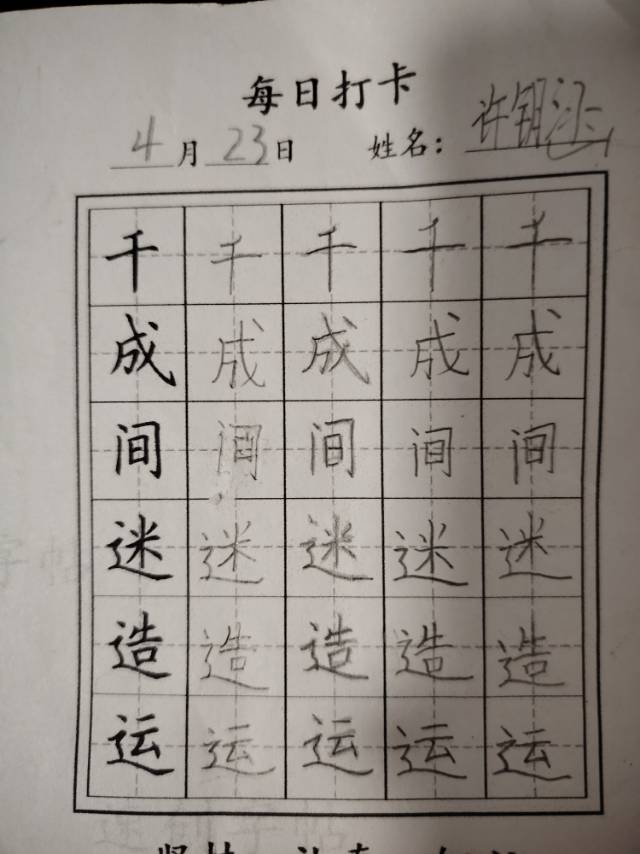 每日打卡
4月23日 姓名：许钥
千千千千千
成成成成成
间间间间间
迷迷迷迷迷
造造造造造
运运运运运